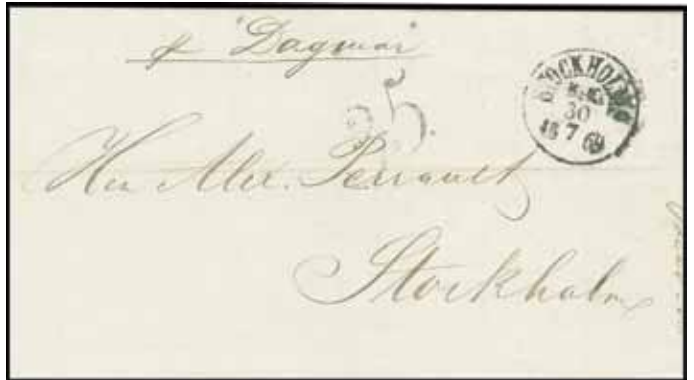 pr "Dagmar"
STOCKHOLM
30
18 7 69
35.
Herr Alex. Perrault
Stockholm